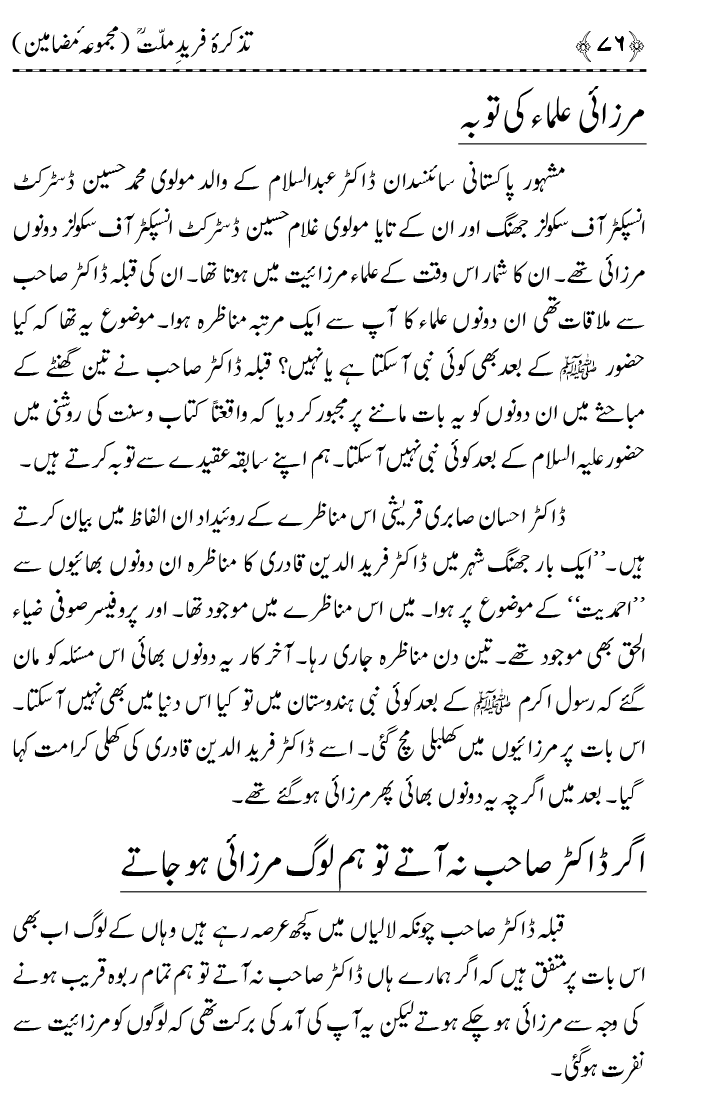 ﴿۷۶﴾ تذکرۂ فریدِ ملّتؒ (مجموعہ مضامین)
مرزائی علماء کی توبہ
مشہور پاکستانی سائنسدان ڈاکٹر عبدالسلام کے والد مولوی محمد حسین ڈسٹرکٹ
انسپکٹر آف سکولز جھنگ اور ان کے تایا مولوی غلام حسین ڈسٹرکٹ انسپکٹر آف سکولز دونوں
مرزائی تھے۔ ان کا شمار اس وقت کے علماء مرزائیت میں ہوتا تھا۔ ان کی قبلہ ڈاکٹر صاحب
سے ملاقات تھی ان دونوں علماء کا آپ سے ایک مرتبہ مناظرہ ہوا۔ موضوع یہ تھا کہ کیا
حضور ﷺ کے بعد بھی کوئی نبی آ سکتا ہے یا نہیں؟ قبلہ ڈاکٹر صاحب نے تین گھنٹے کے
مباحثے میں ان دونوں کو یہ بات ماننے پر مجبور کر دیا کہ واقعتاً کتاب و سنت کی روشنی میں
حضور علیہ السلام کے بعد کوئی نبی نہیں آ سکتا۔ ہم اپنے سابقہ عقیدے سے توبہ کرتے ہیں۔
ڈاکٹر احسان صابری قریشی اس مناظرے کے روئیداد ان الفاظ میں بیان کرتے
ہیں۔ ’’ایک بار جھنگ شہر میں ڈاکٹر فرید الدین قادری کا مناظرہ ان دونوں بھائیوں سے
’’احمدیت‘‘ کے موضوع پر ہوا۔ میں اس مناظرے میں موجود تھا۔ اور پروفیسر صوفی ضیاء
الحق بھی موجود تھے۔ تین دن مناظرہ جاری رہا۔ آخر کار یہ دونوں بھائی اس مسئلہ کو مان
گئے کہ رسول اکرم ﷺ کے بعد کوئی نبی ہندوستان میں تو کیا اس دنیا میں بھی نہیں آ سکتا۔
اس بات پر مرزائیوں میں کھلبلی مچ گئی۔ اسے ڈاکٹر فرید الدین قادری کی کھلی کرامت کہا
گیا۔ بعد میں اگرچہ یہ دونوں بھائی پھر مرزائی ہو گئے تھے۔
اگر ڈاکٹر صاحب نہ آتے تو ہم لوگ مرزائی ہو جاتے
قبلہ ڈاکٹر صاحب چونکہ لالیاں میں کچھ عرصہ رہے ہیں وہاں کے لوگ اب بھی
اس بات پر متفق ہیں کہ اگر ہمارے ہاں ڈاکٹر صاحب نہ آتے تو ہم تمام ربوہ قریب ہونے
کی وجہ سے مرزائی ہو چکے ہوتے لیکن یہ آپ کی آمد کی برکت تھی کہ لوگوں کو مرزائیت سے
نفرت ہو گئی۔